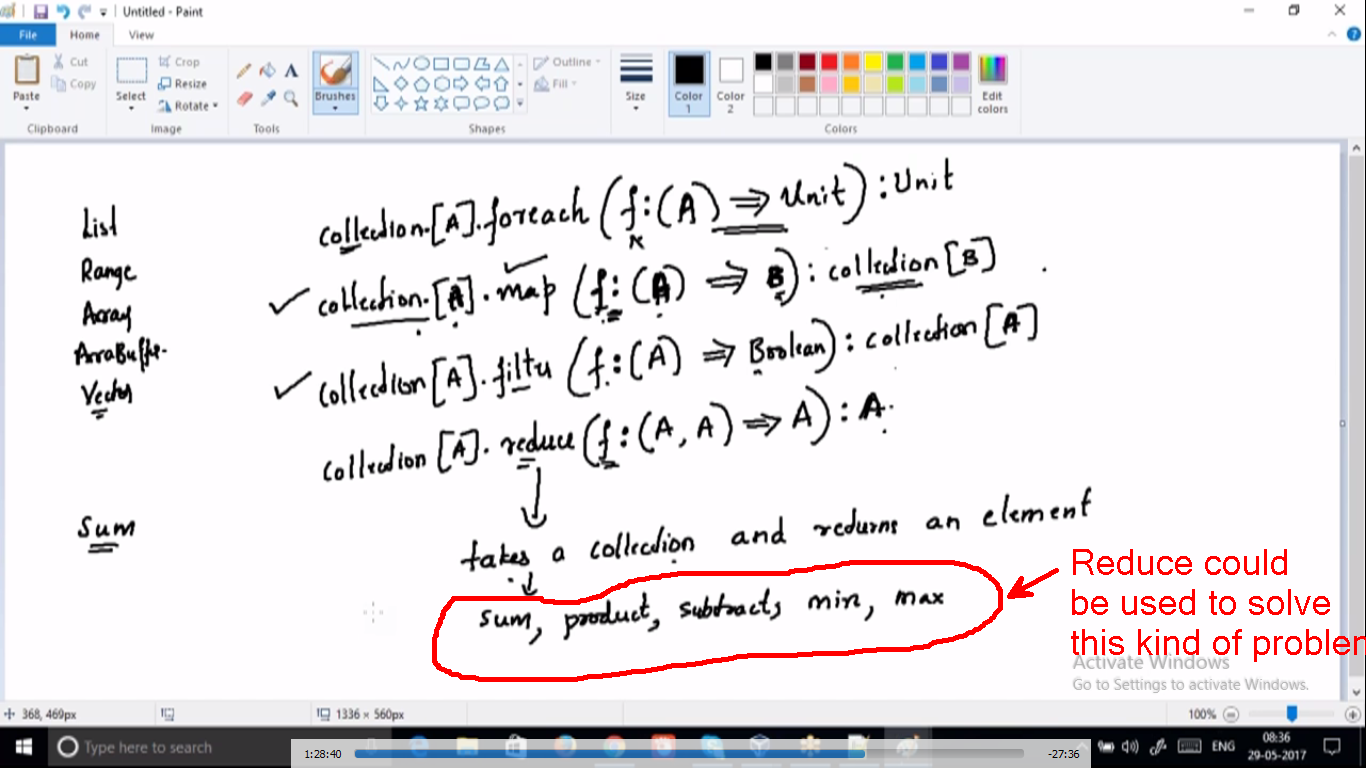 Untitled - Paint
File Home View
Paste Cut Copy Clipboard
Select Crop Resize Rotate Image
Tools
Brushes
Outline Fill Shapes
Size
Color 1 Color 2 Edit colors Colors
List
Range
Array
ArraBuffe.
Vector
Sum
collection.[A].foreach (f:(A) => Unit) : Unit
collection.[A].map (f:(A) => B) : collection [B]
collection [A].filter (f:(A) => Boolean) : collection [A]
collection [A].reduce (f:(A, A) => A) : A
takes a collection and returns an element
sum, product, subtract, min, max
Reduce could
be used to solve
this kind of problem
Activate Windows
Go to Settings to activate Windows.
368, 469px 1336 × 560px 100%
Type here to search
1:28:40 -27:36
ENG 08:36
29-05-2017